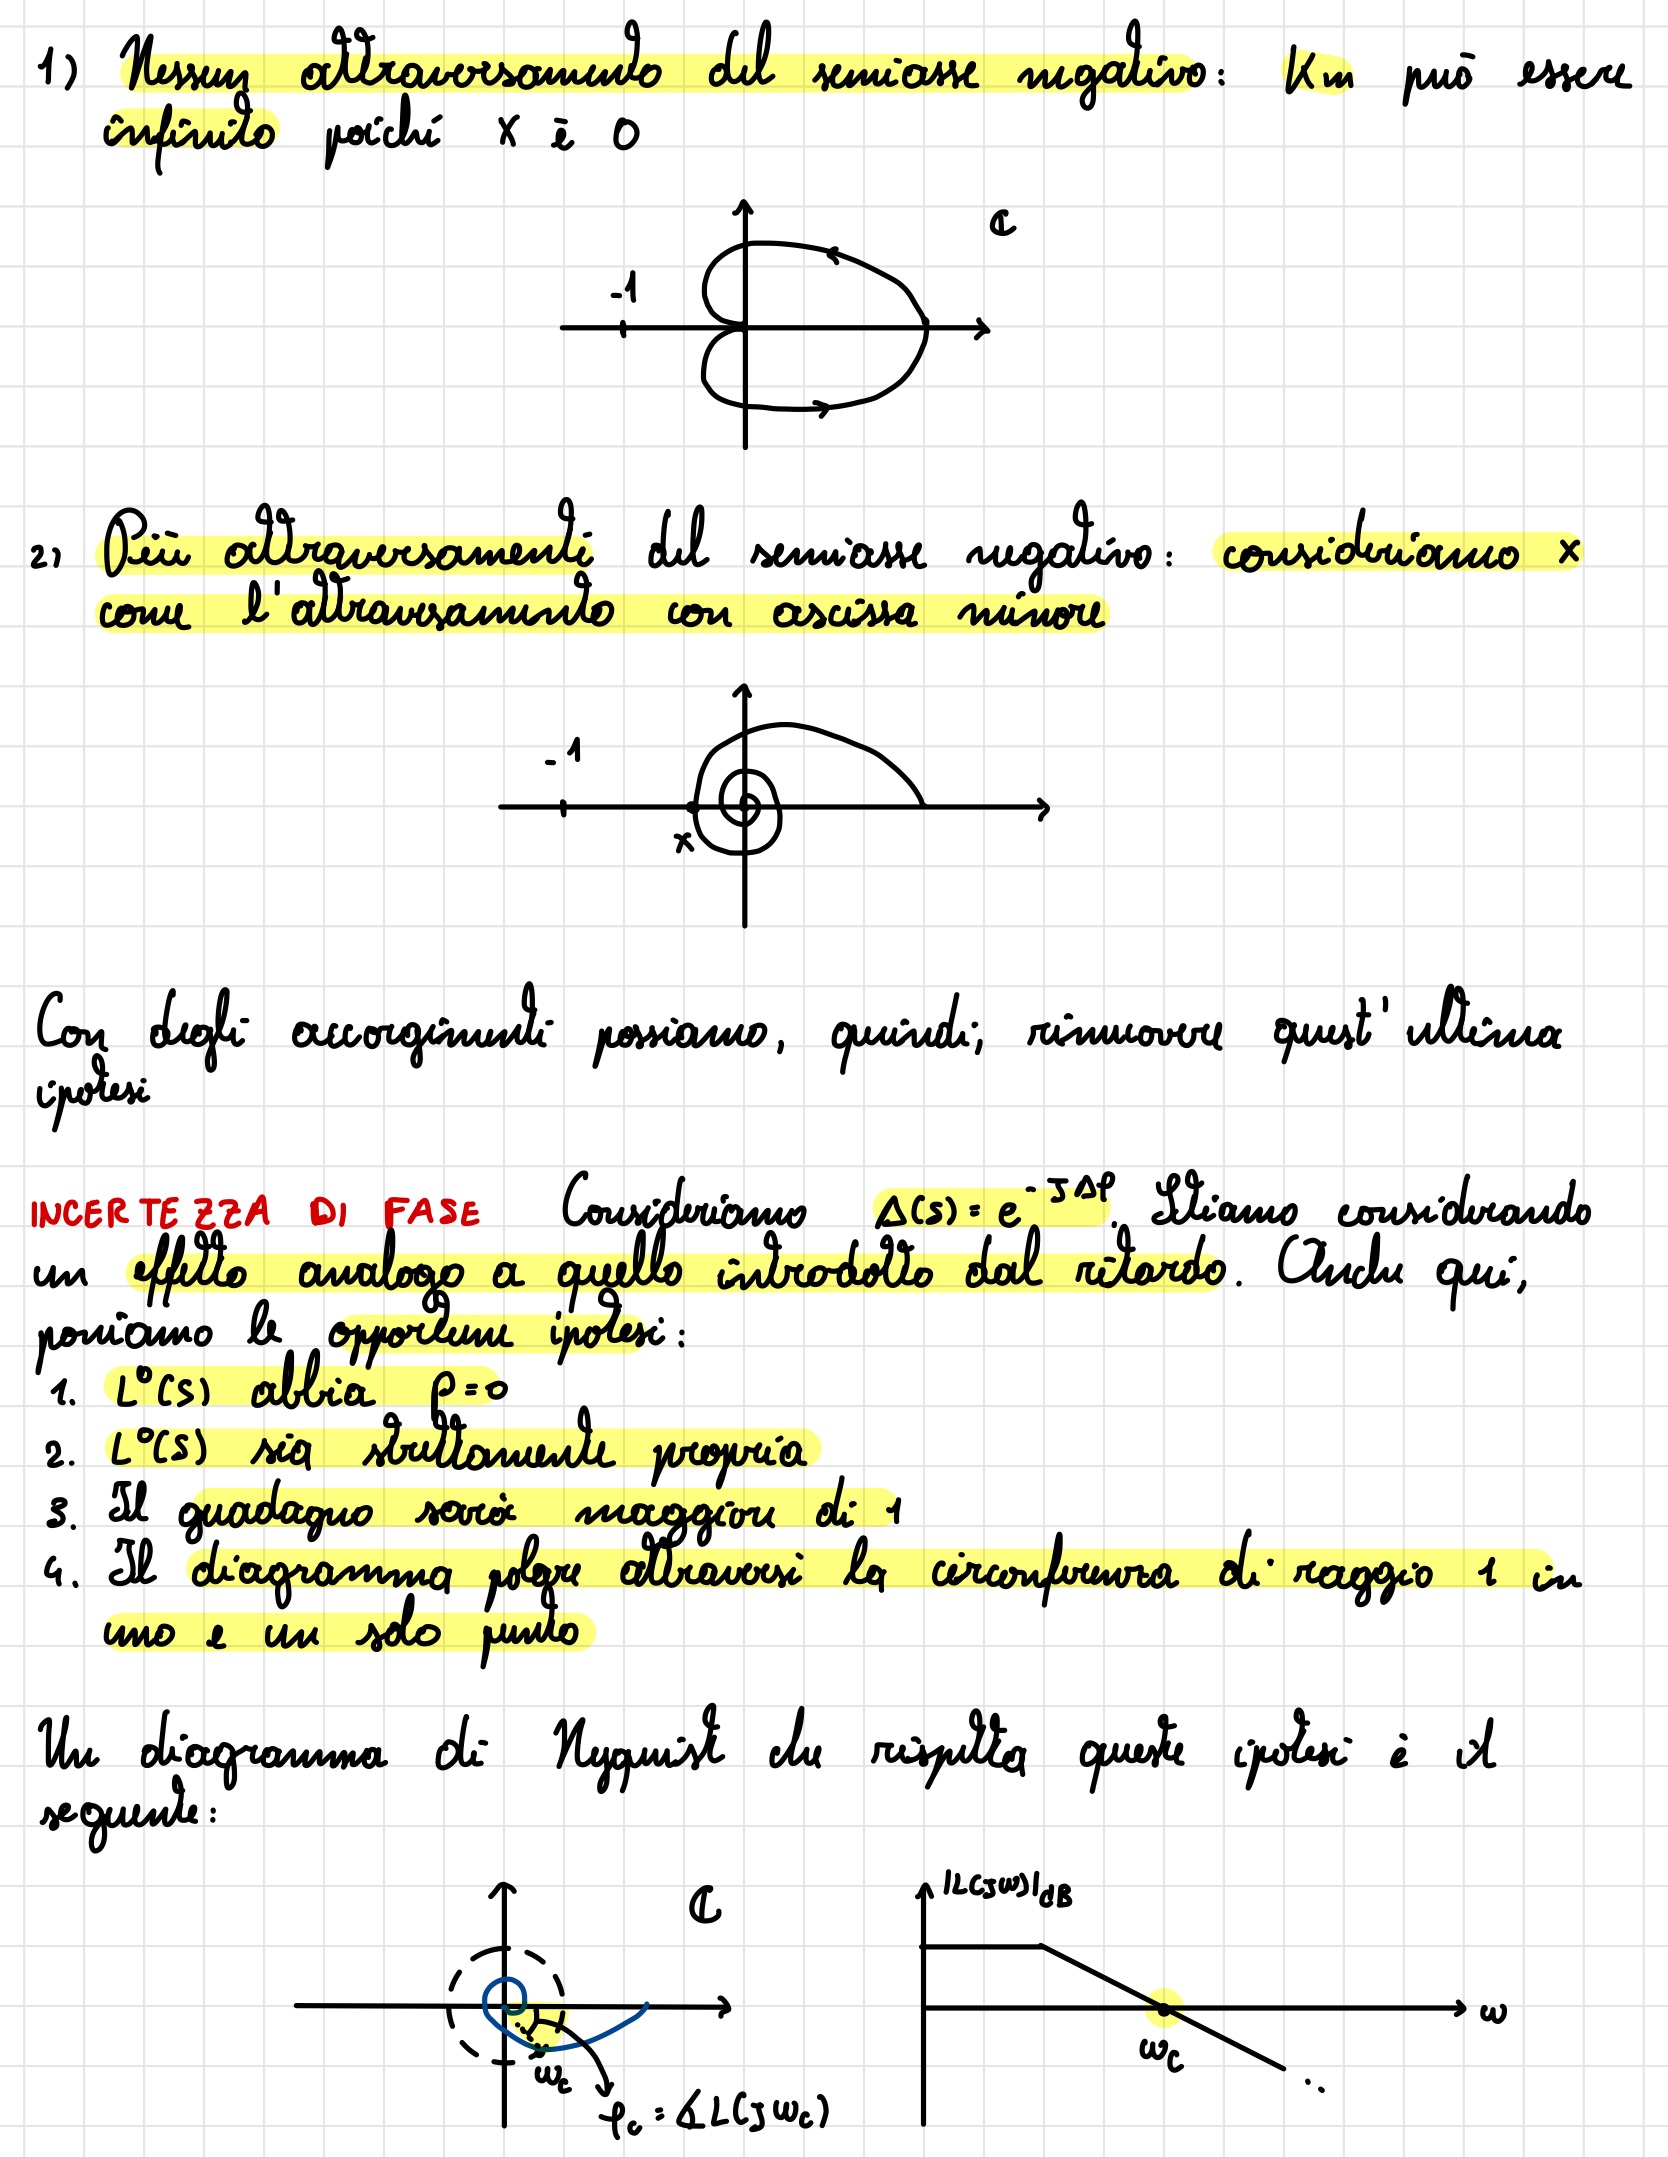 1) Nessun attraversamento del semiasse negativo: Km può essere
infinito poiché x è 0
ℂ
-1
2) Più attraversamenti del semiasse negativo: consideriamo x
come l'attraversamento con ascissa minore
-1
x
Con degli accorgimenti possiamo, quindi, rimuovere quest'ultima
ipotesi
INCERTEZZA DI FASE Consideriamo Δ(s) = e^-JΔφ. Stiamo considerando
un effetto analogo a quello introdotto dal ritardo. Anche qui,
poniamo le opportune ipotesi:
1. L°(s) abbia P=0
2. L°(s) sia strettamente propria
3. Il guadagno sarà maggiore di 1
4. Il diagramma polare attraversi la circonferenza di raggio 1 in
uno e un solo punto
Un diagramma di Nyquist che rispetta queste ipotesi è il
seguente:
ℂ
|L(jω)|dB
ω
ωc
ωc
φc = ∡L(jωc)